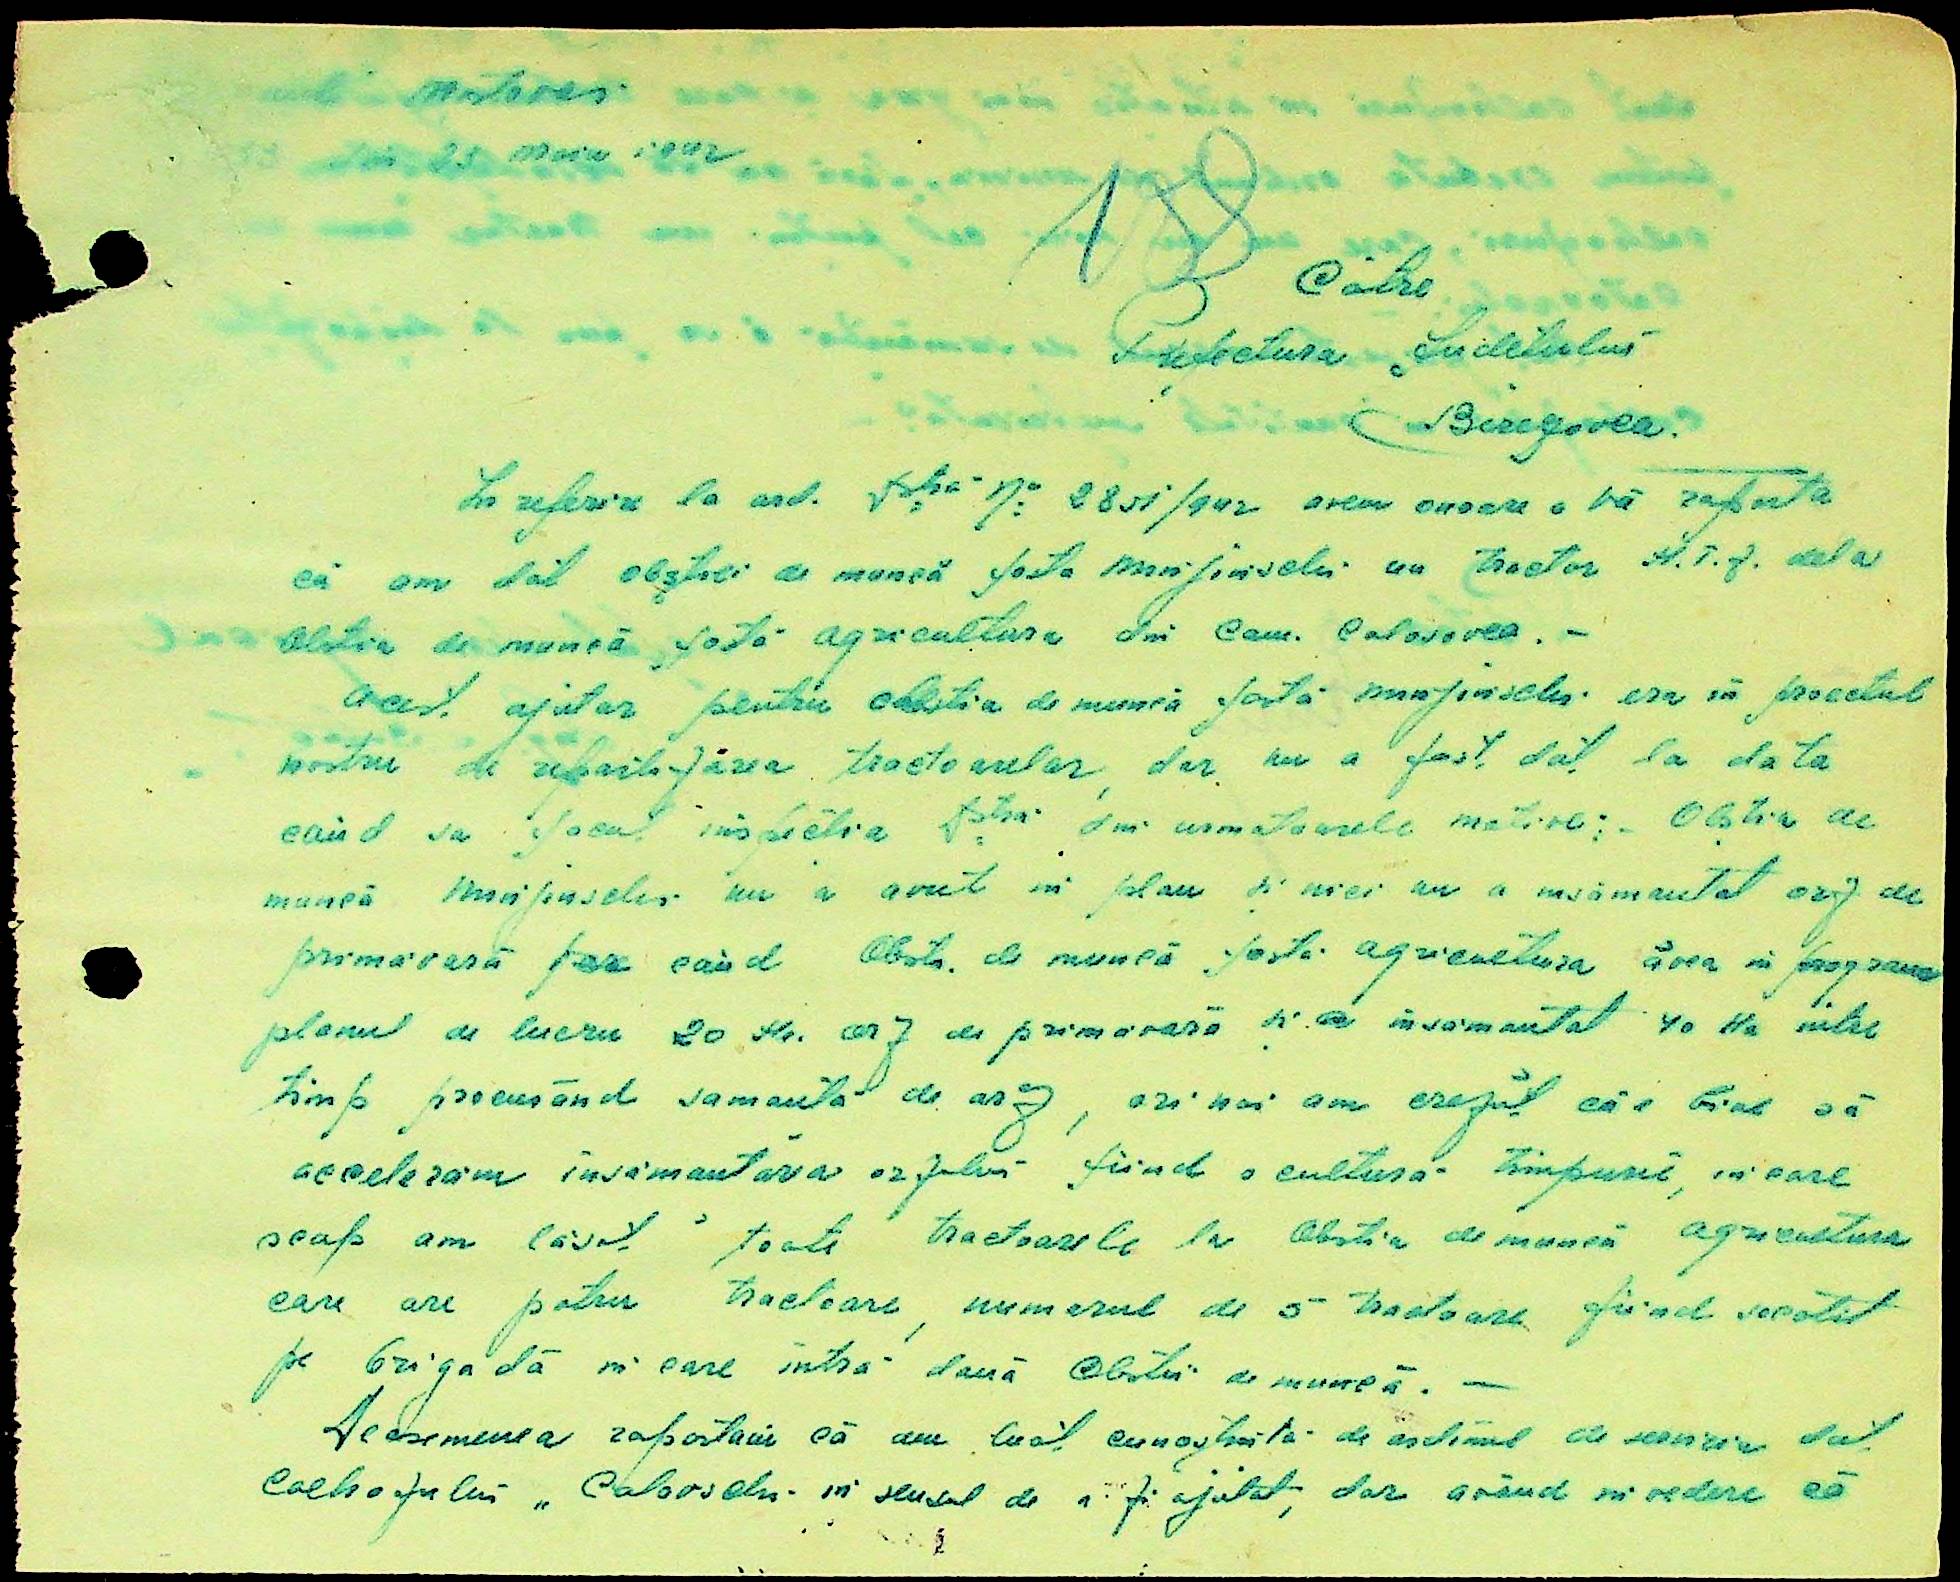 Mostovoi
din 25 Maiu 1942
188
Către
Prefectura Judetului
Beregovca.
In referire la ord. Dtra No 2851/942 avem onoare a vă raporta
că am dat obstiei de muncă fosta un tractor H.T.Z. dela
Obstia de muncă fostă agricultura din Com. .-
Acest ajutor pentru obstia de muncă fostă era in proectul
nostru de repartizărea tractoarelor, dar nu a fost dat la data
când sa facut inspectia Dtra din urmatoarele motive:- Obstia de
muncă nu a avut in plan si nici nu a insămantat orz de
primăvară pe când Obsti. de muncă fostă agricultura avea in program
planul de lucru 20 Ha. orz de primăvară si a insămantat 40 Ha intre
timp procurând samantă de orz, ori noi am crezut că e bine să
acceleram insămantărea orzului fiind o cultură timpurie, in care
scop am lăsat toate tractoarele la Obstia de muncă agricultura
care are patru tractoare, numarul de 5 tractoare fiind socotit
pe brigadă in care intră două Obstii de muncă. -
Deasemenea raportăm că am luat cunostintă de ordinul de serviciu dat
Colhozului „ in sensul de a fi ajutat, dar având in vedere că